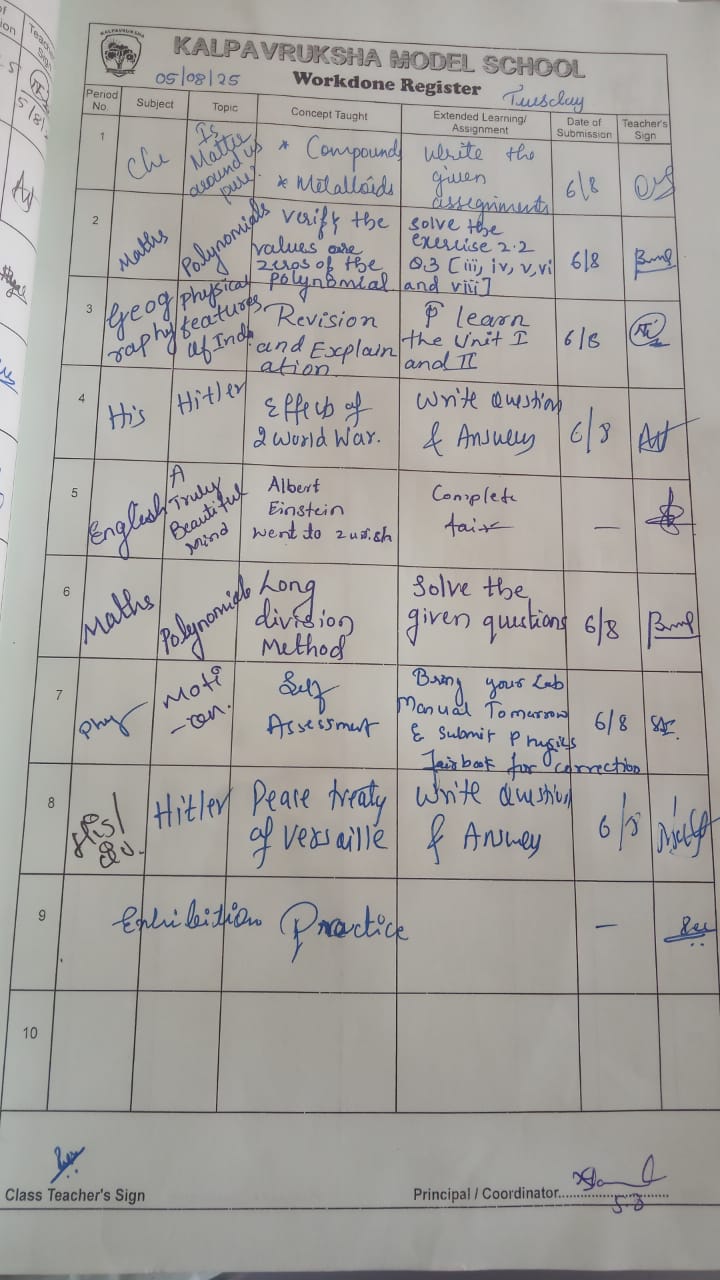 KALPAVRUKSHA
KALPAVRUKSHA MODEL SCHOOL
05/08/25 Workdone Register Tuesday
Period No. Subject Topic Concept Taught Extended Learning/ Assignment Date of Submission Teacher's Sign
1 Che Is Matter around us pure? * Compounds * Metalloids Write the given assegnments 6/8
2 Maths Polynomials verify the values are zeros of the polynomial solve the exercise 2.2 Q.3 [iii, iv, v, vi and viii] 6/8
3 Geography physical features of Ind Revision and Explanation learn the Unit I and II 6/8
4 His Hitler Effects of 2 World War. Write Question & Answers 6/8
5 English A Truly Beautiful Mind Albert Einstein went to zurich Complete fair —
6 Maths Polynomials Long division Method Solve the given questions 6/8
7 Phy Moti-on. Self Assessment Bring your Lab Manual Tomorrow & submit Physics Fairbook for correction 6/8
8 His/ Hitler Peace treaty of Versaille Write Question & Answer 6/8
9 Exhibition Practice —
10
Class Teacher's Sign Principal / Coordinator
5.8